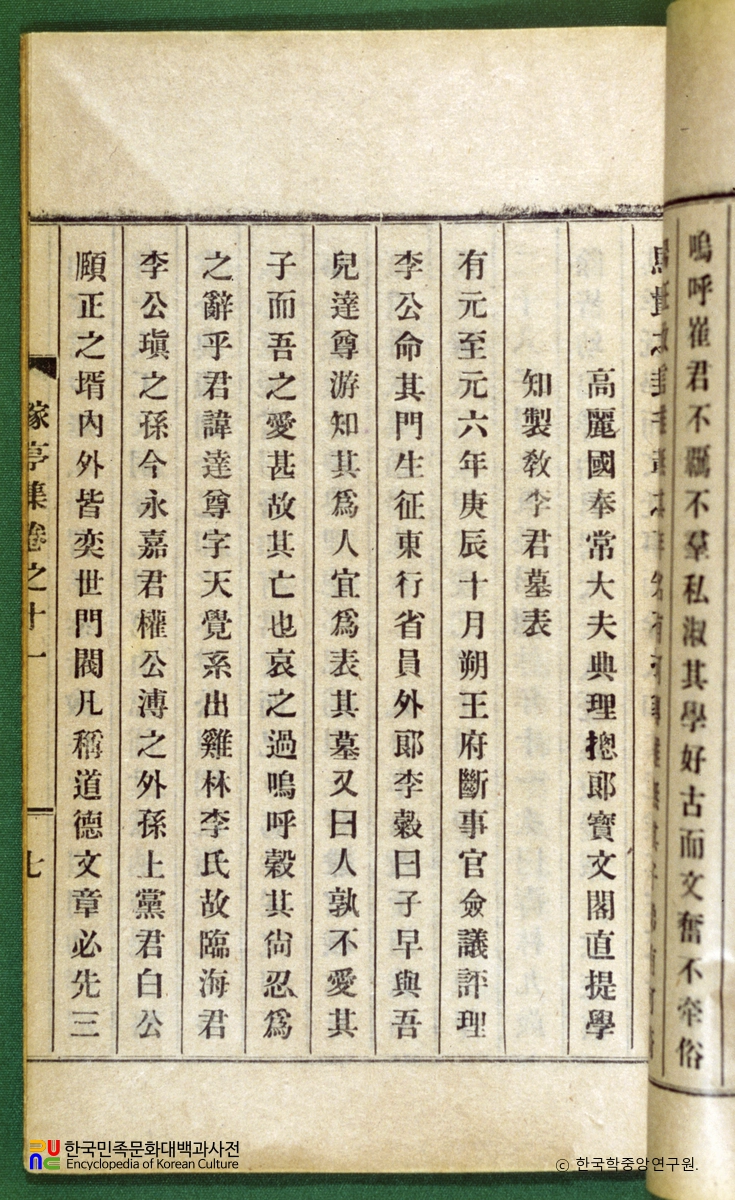 嗚呼崔君不羈不羣私淑其學好古而文奮不牽俗
高麗國奉常大夫典理摠郞寶文閣直提學
知製敎李君墓表
有元至元六年庚辰十月朔王府斷事官僉議評理
李公命其門生征東行省員外郞李穀曰子早與吾
兒達尊游知其爲人宜爲表其墓又曰人孰不愛其
子而吾之愛甚故其亡也哀之過嗚呼穀其尙忍爲
之辭乎君諱達尊字天覺系出雞林李氏故臨海君
李公瑱之孫今永嘉君權公溥之外孫上黨君白公
頤正之壻內外皆奕世門閥凡稱道德文章必先三
稼亭集卷之十一
七
한국민족문화대백과사전
Encyclopedia of Korean Culture
© 한국학중앙연구원.